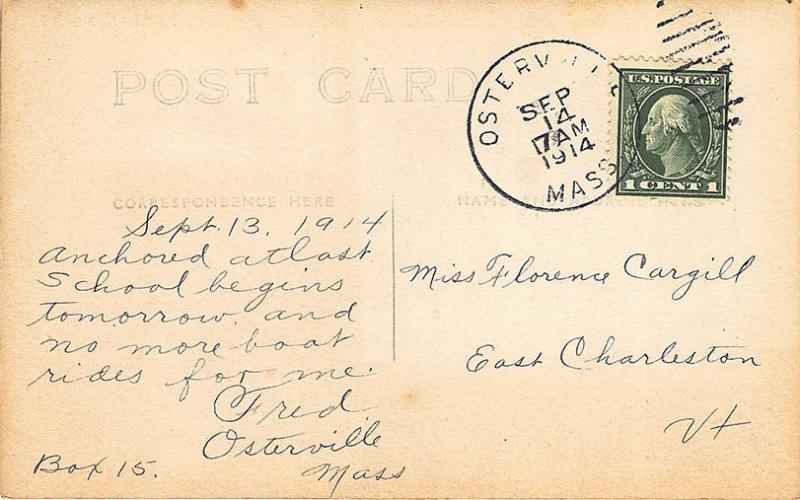 POST CARD
OSTERVILLE
SEP
14
7 AM
1914
MASS
U.S. POSTAGE
1 CENT 1
CORRESPONDENCE HERE
NAME
Sept. 13, 1914
Anchored at last
School begins
tomorrow and
no more boat
rides for me.
Fred
Osterville
Mass
Box 15.
Miss Florence Cargill
East Charleston
Vt